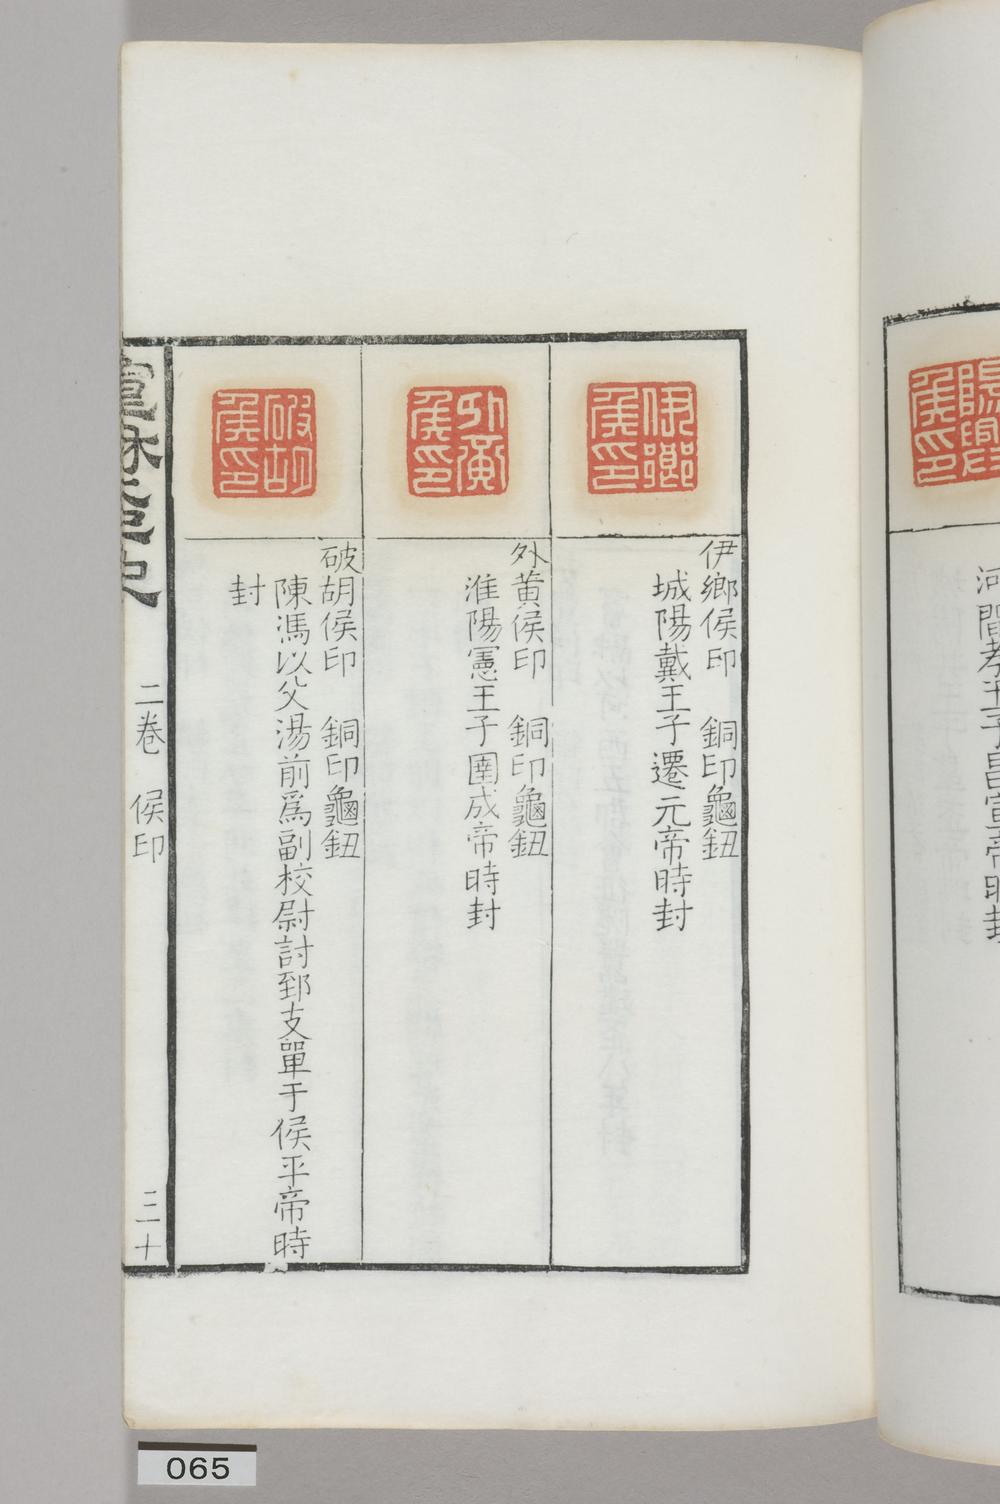 伊鄉
侯印
伊鄉侯印　銅印龜鈕
城陽戴王子遷元帝時封
外黄
侯印
外黄侯印　銅印龜鈕
淮陽憲王子圉成帝時封
破胡
侯印
破胡侯印　銅印龜鈕
陳馮以父湯前爲副校尉討郅支單于侯平帝時
封
二卷　侯印
三十
侯印
河間孝王子昌宣帝時封
065